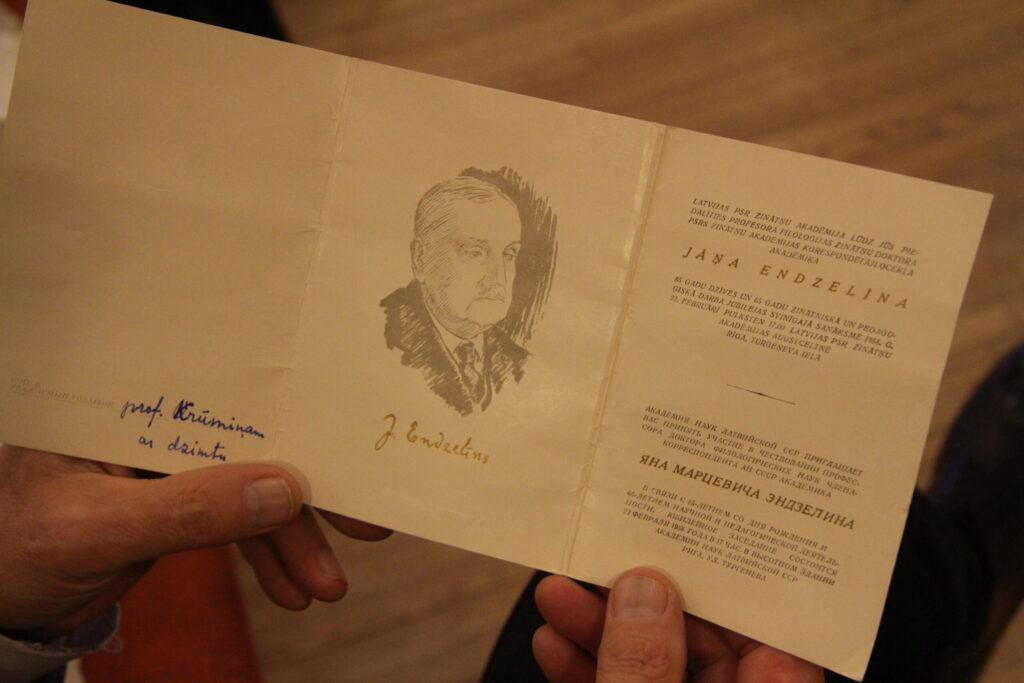 УВАЖАЕМЫЙ ТОВАРИЩ
prof. Krūmiņam
ar dzimtu
J. Endzelīns
LATVIJAS PSR ZINĀTŅU AKADĒMIJA LŪDZ JŪS PIE-
DALĪTIES PROFESORA FILOLOĢIJAS ZINĀTŅU DOKTORA
PSRS ZINĀTŅU AKADEMIJAS KORESPONDĒTĀJLOCEKĻA
AKADĒMIĶA
JĀŅA ENDZELĪNA
85 GADU DZĪVES UN 65 GADU ZINĀTNISKĀ UN PEDAGO-
ĢISKĀ DARBA JUBILEJAS SVINĪGAJĀ SANĀKSMĒ 1958. G.
22. FEBRUĀRĪ PULKSTEN 17.00 LATVIJAS PSR ZINĀTŅU
AKADĒMIJAS AUGSTCELTNĒ
RĪGĀ, TURGEŅEVA IELĀ
АКАДЕМИЯ НАУК ЛАТВИЙСКОЙ ССР ПРИГЛАШАЕТ
ВАС ПРИНЯТЬ УЧАСТИЕ В ЧЕСТВОВАНИИ ПРОФЕС-
СОРА ДОКТОРА ФИЛОЛОГИЧЕСКИХ НАУК ЧЛЕНА-
КОРРЕСПОНДЕНТА АН СССР АКАДЕМИКА
ЯНА МАРЦЕВИЧА ЭНДЗЕЛИНА
В СВЯЗИ С 85-ЛЕТИЕМ СО ДНЯ РОЖДЕНИЯ И
65-ЛЕТИЕМ НАУЧНОЙ И ПЕДАГОГИЧЕСКОЙ ДЕЯТЕЛЬ-
НОСТИ. ЮБИЛЕЙНОЕ ЗАСЕДАНИЕ СОСТОИТСЯ
22 ФЕВРАЛЯ 1958 ГОДА В 17 ЧАС. В ВЫСОТНОМ ЗДАНИИ
АКАДЕМИИ НАУК ЛАТВИЙСКОЙ ССР
РИГА, УЛ. ТУРГЕНЕВА